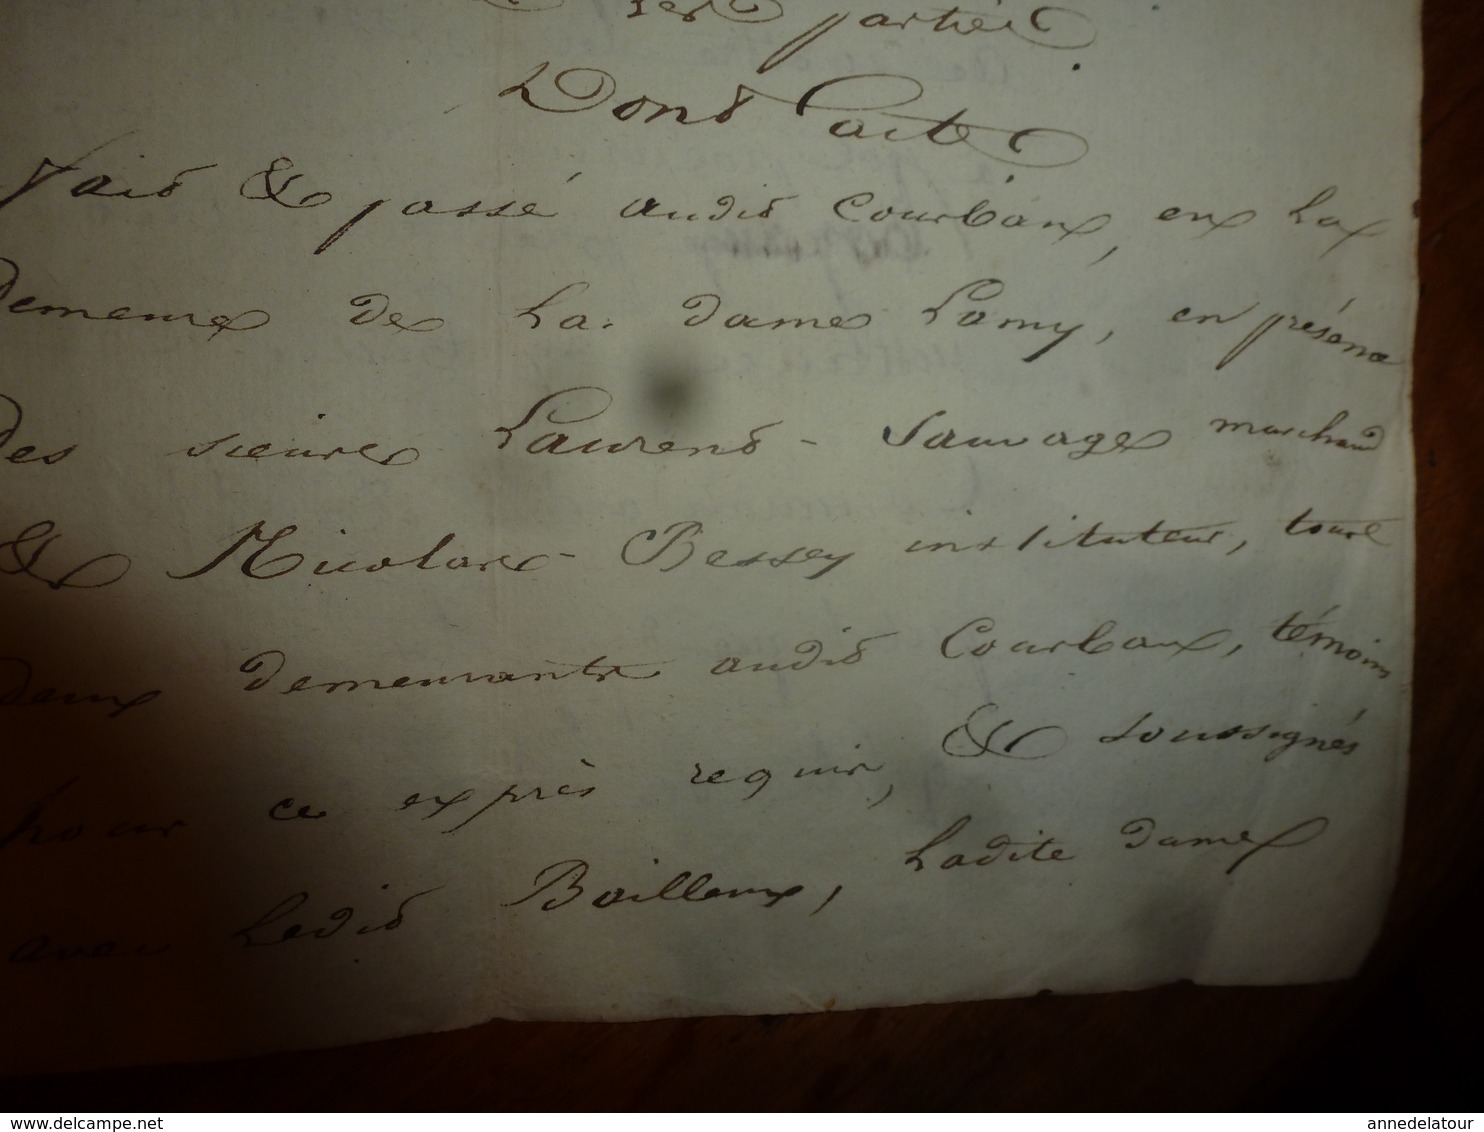 parties
Dont acte
Fait & passé audit Courbaux, en la
demeure de la dame Lamy, en présence
des sieurs Laurent-Sauvage marchand
& Nicolas-Bessey instituteur, tous
deux demeurants audit Courbaux, témoins
pour ce exprès requis, & soussignés
avec ledit Bailleux, ladite dame
delcampe.net
annedelatour